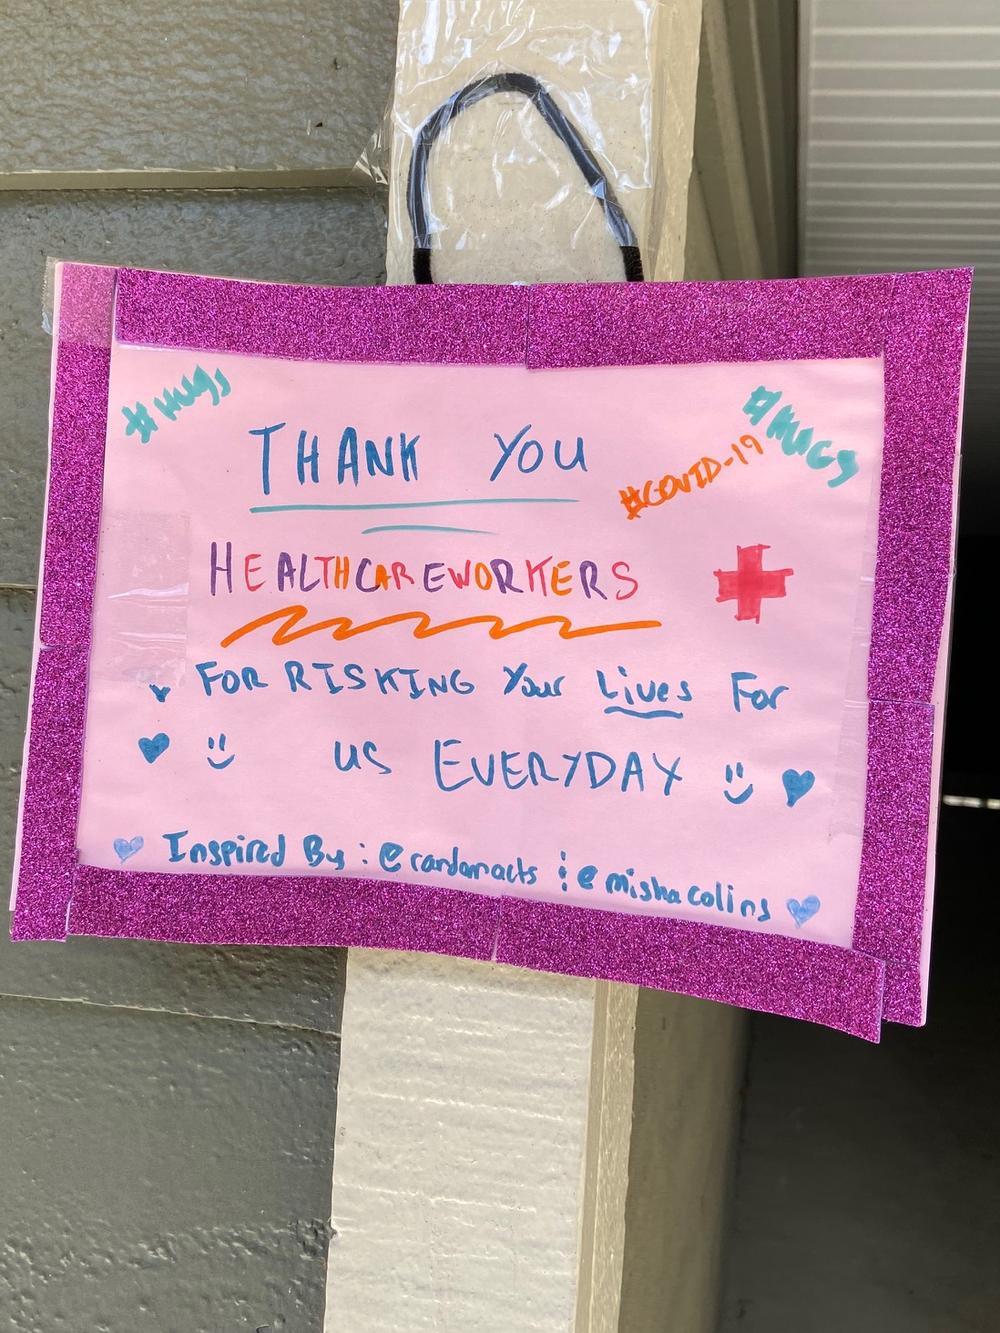 #Hugs
#HUGS
THANK YOU
#COVID-19
HEALTHCAREWORKERS
FOR RISKING Your Lives For
us EVERYDAY
Inspired By: @randomacts & @mishacolins